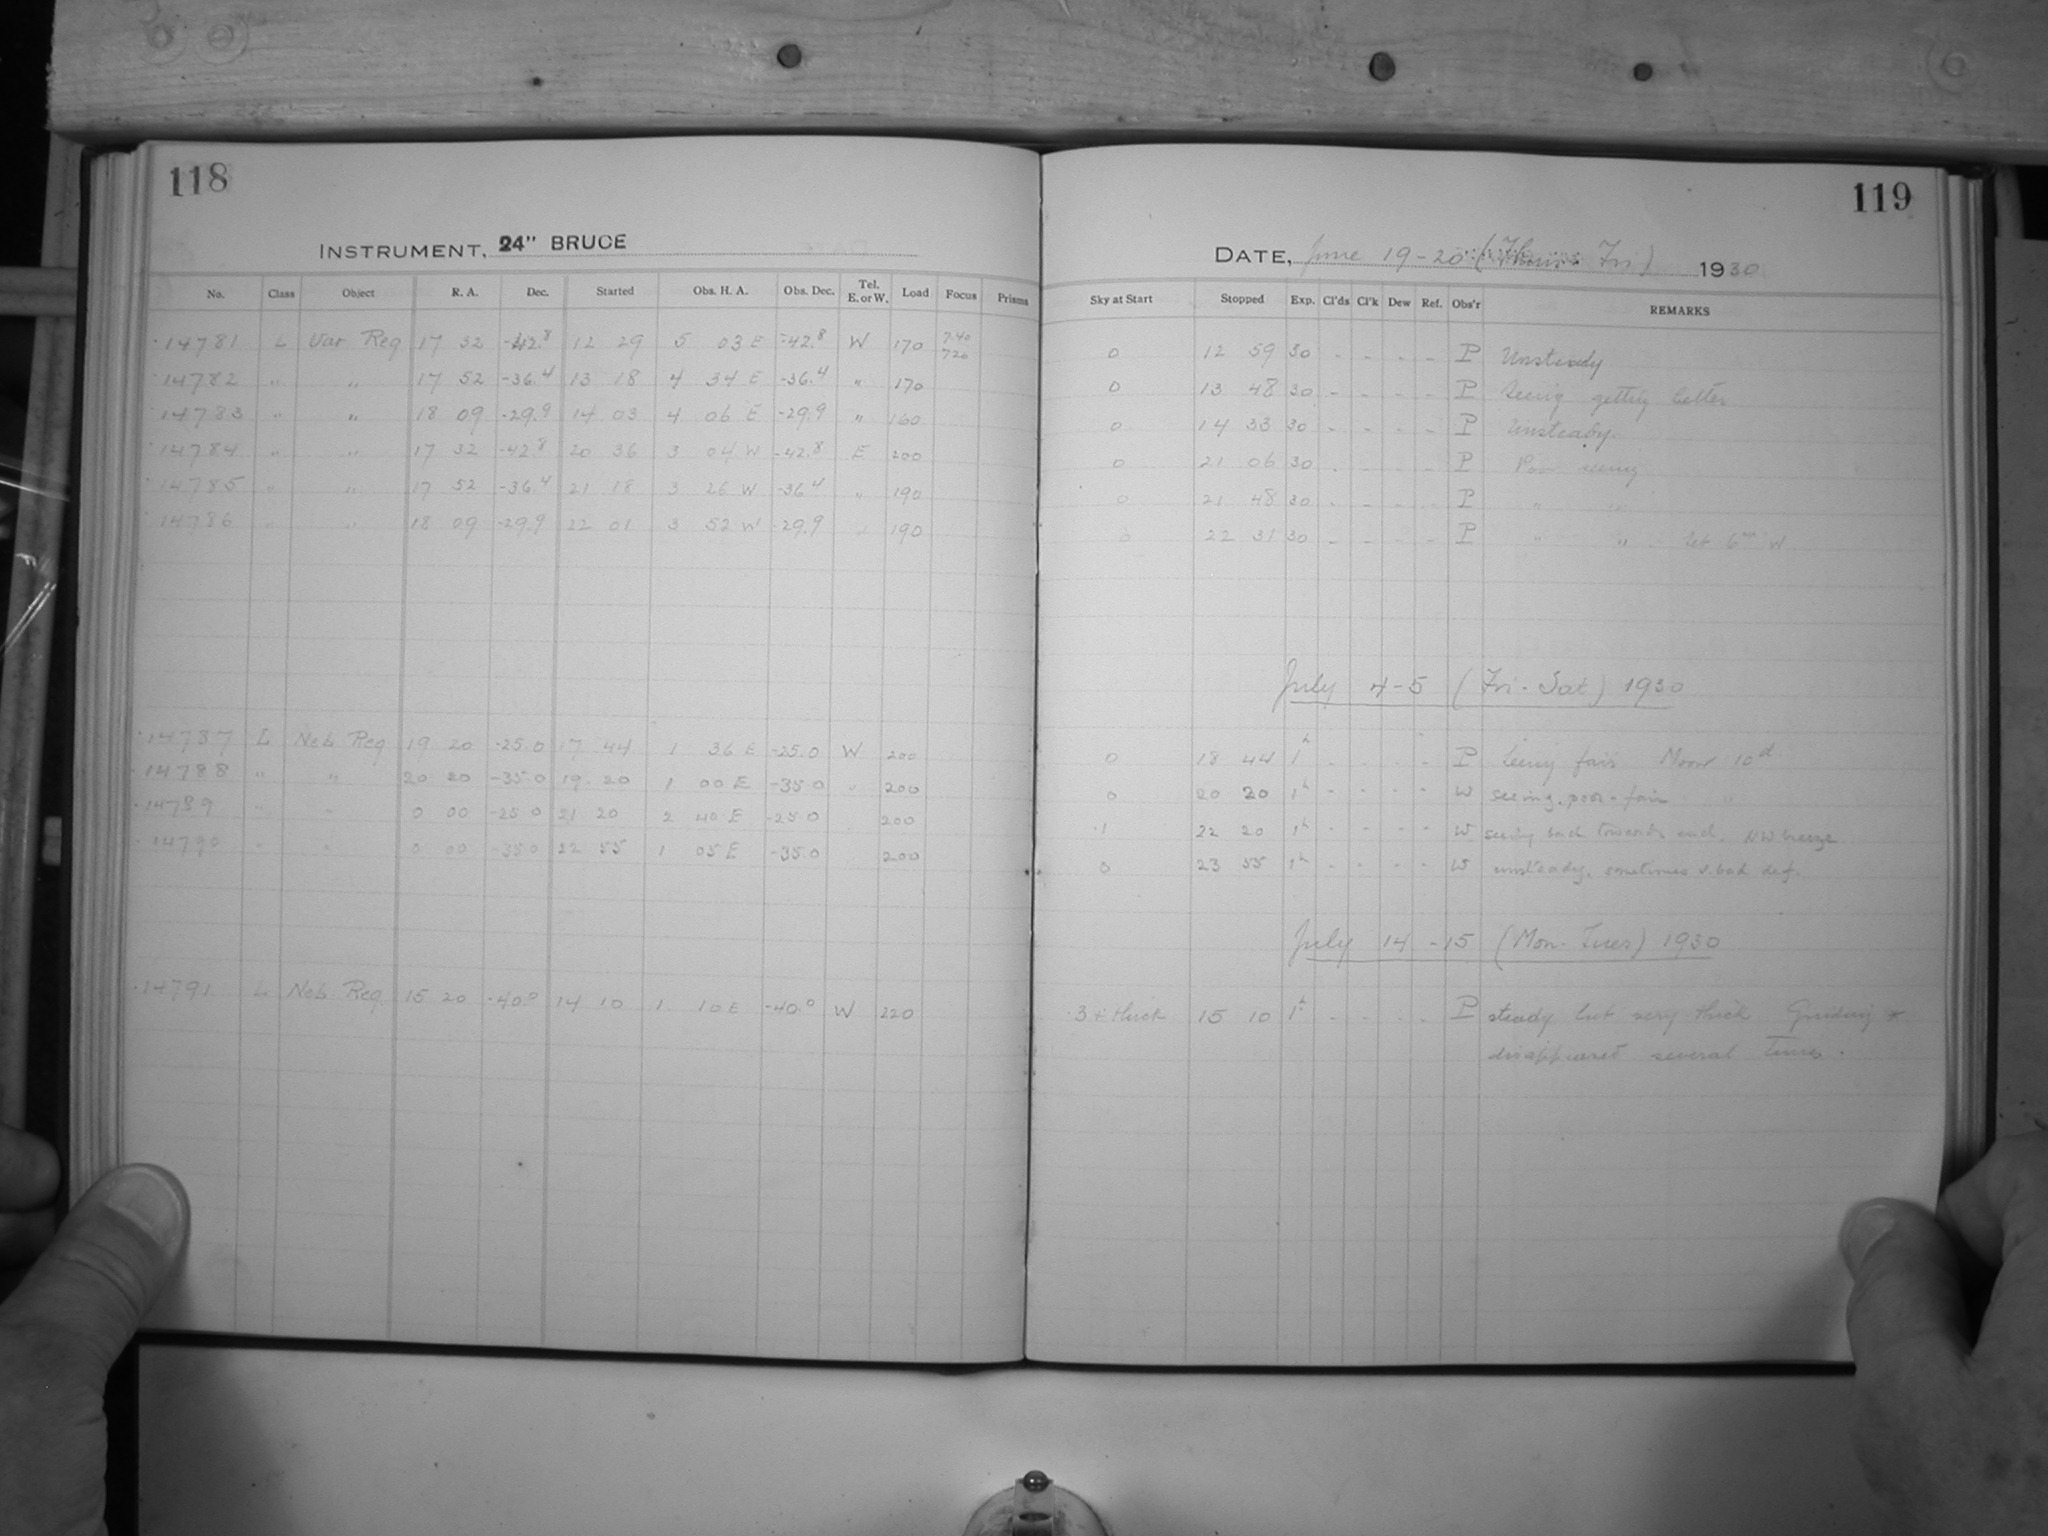 118
INSTRUMENT, 24" BRUCE
No. Class Object R. A. Dec. Started Obs. H. A. Obs. Dec. Tel. E. or W. Load Focus Prisms
14781 L Var Reg 17 32 -42.8 12 29 5 03 E -42.8 W 170 7.40 726
14782 " " 17 52 -36.4 13 18 4 34 E -36.4 " 170
14783 " " 18 09 -29.9 14 03 4 06 E -29.9 " 160
14784 " " 17 32 -42.8 20 36 3 04 W -42.8 E 200
14785 " " 17 52 -36.4 21 18 3 26 W -36.4 " 190
14786 " " 18 09 -29.9 22 01 3 52 W -29.9 " 190
14787 L Neb Reg 19 20 -25.0 17 44 1 36 E -25.0 W 200
14788 " " 20 20 -35.0 19 20 1 00 E -35.0 " 200
14789 " " 0 00 -25.0 21 20 2 40 E -25.0 200
14790 " " 0 00 -35.0 22 55 1 05 E -35.0 200
14791 L Neb Reg 15 20 -40.0 14 10 1 10 E -40.0 W 220
119
DATE, June 19-20 (Thurs Fri) 1930
Sky at Start Stopped Exp. Cl'ds Cl'k Dew Ref. Obs'r REMARKS
0 12 59 30 - - - - P Unsteady
0 13 48 30 - - - - P Seeing getting better
0 14 33 30 - - - - P Unsteady
0 21 06 30 - - - - P Poor seeing
0 21 48 30 - - - - P " "
0 22 31 30 - - - - P " " Set 6m W
July 4-5 (Fri-Sat) 1930
0 18 44 1h - - - - P Seeing fair Moon 10d
0 20 20 1h - - - - W seeing poor-fair
.1 22 20 1h - - - - W seeing bad towards end. NW breeze
0 23 55 1h - - - - W unsteady, sometimes v. bad def.
July 14-15 (Mon-Tues) 1930
3 + thick 15 10 1h - - - - P steady but very thick Guiding *
disappeared several times.